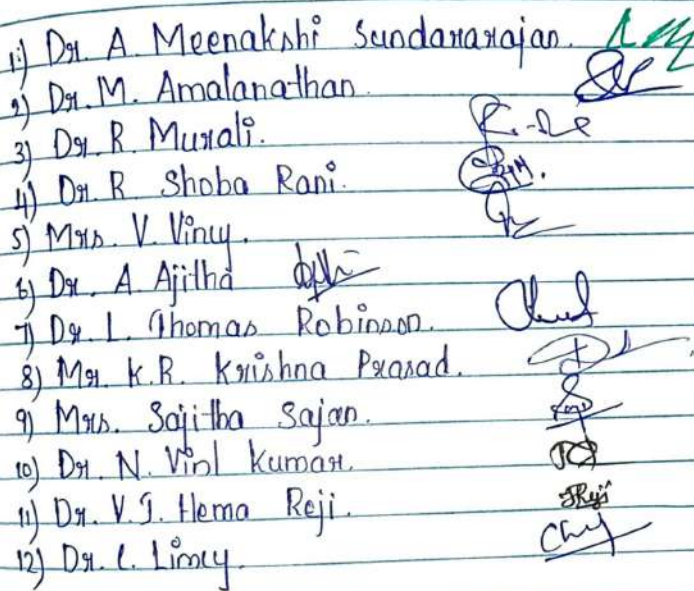 1) Dr. A Meenakshi Sundararajan.
2) Dr. M. Amalanathan
3) Dr. R Murali.
4) Dr. R Shoba Rani.
5) Mrs. V. Vincy.
6) Dr. A. Ajitha
7) Dr. L. Thomas Robinson.
8) Mr. K.R. Krishna Prasad.
9) Mrs. Sajitha Sajan.
10) Dr. N. Vinl Kumar.
11) Dr. V.J. Hema Reji.
12) Dr. C. Limcy.